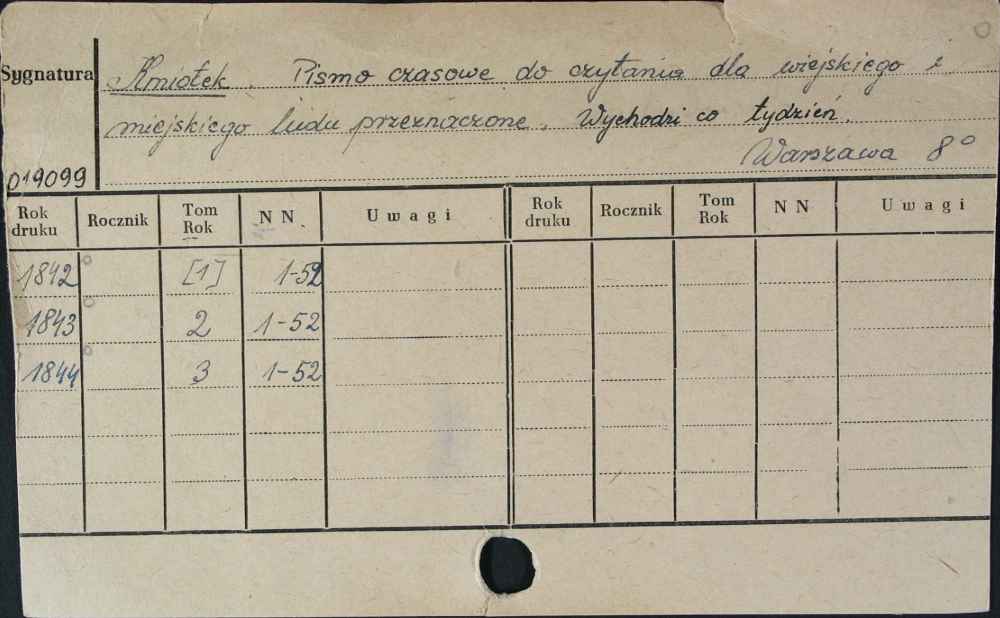 Sygnatura
Kmiotek. Pismo czasowe do czytania dla wiejskiego i
miejskiego ludu przeznaczone. Wychodzi co tydzień.
Warszawa 8°
019099
Rok druku Rocznik Tom Rok N N Uwagi Rok druku Rocznik Tom Rok N N Uwagi
1842 [1] 1-52
1843 2 1-52
1844 3 1-52